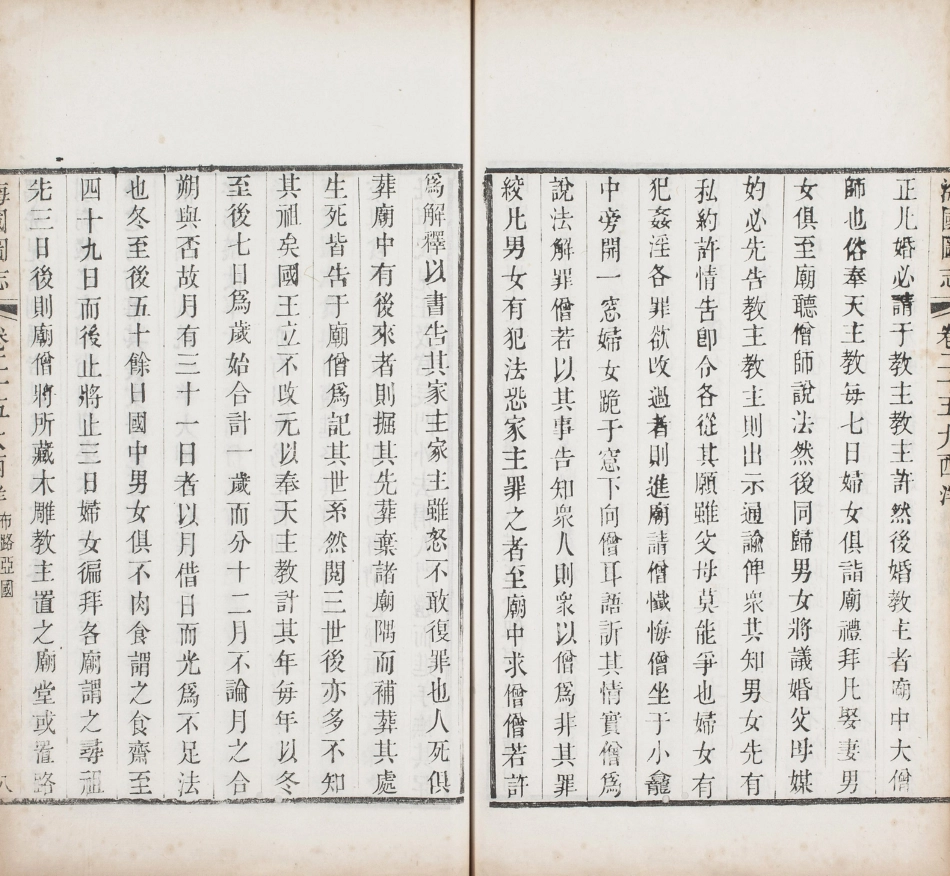 正凡婚必請于教主教主許然後婚教主者廟中大僧
師也俗奉天主教每七日婦女俱詣廟禮拜凡娶妻男
女俱至廟聽僧師說法然後同歸男女將議婚父母媒
妁必先告教主教主則出示通諭俾衆共知男女先有
私約許情告卽令各從其願雖父母莫能爭也婦女有
犯姦淫各罪欲改過者則進廟請僧懺悔僧坐于小龕
中旁開一窓婦女跪于窓下向僧耳語訴其情實僧爲
說法解罪僧若以其事告知衆人則衆以僧爲非其罪
絞凡男女有犯法恐家主罪之者至廟中求僧僧若許
爲解釋以書告其家主家主雖怒不敢復罪也人死俱
葬廟中有後來者則掘其先葬棄諸廟隅而補葬其處
生死皆告于廟僧爲記其世系然閱三世後亦多不知
其祖矣國王立不改元以奉天主教計其年每年以冬
至後七日爲歲始合計一歲而分十二月不論月之合
朔與否故月有三十一日者以月借日而光爲不足法
也冬至後五十餘日國中男女俱不肉食謂之食齋至
四十九日而後止將止三日婦女徧拜各廟謂之尋祖
先三日後則廟僧將所藏木雕教主置之廟堂或置路
海國圖志
布路亞國
八